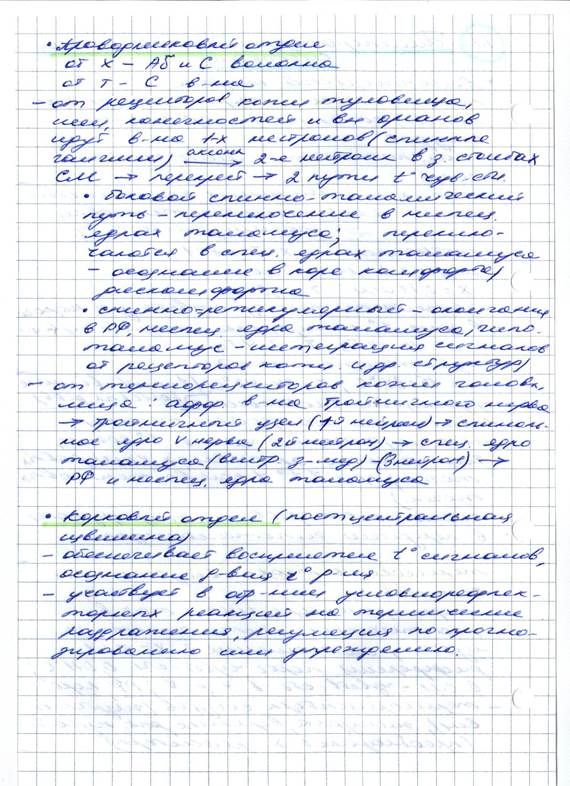 • Проводниковый отдел
от Х – Aδ и С волокна
от Т – С в-на
– от рецепторов кожи туловища,
шеи, конечностей и вн. органов
идут в-на 1-х нейронов (спинные
ганглии) аксоны → 2-е нейроны в з. столбах
СМ → перекрест → 2 пути t° чув-сти
• боковой спинно-таламический
путь – переключение в неспец.
ядрах таламуса; переклю-
чаются в спец. ядрах таламуса
– осознание в коре комфорта/
дискомфорта
• спинно-ретикулярный – окончания
в РФ, неспец. ядра таламуса, гипо-
таламус – интеграция сигналов
от рецепторов кожи и др. структур)
– от терморецепторов кожи головы,
лица: афф. в-на тройничного нерва
→ тройничный узел (1й нейрон) → спиналь-
ное ядро V нерва (2й нейрон) → спец. ядро
таламуса (вентр. з-мед) – (3 нейрон) →
РФ и неспец. ядра таламуса
• Корковый отдел (постцентральная
извилина)
– обеспечивает восприятие t° сигналов,
осознание р-вия t° р-ля
– участвует в обр-нии условнорефлек-
торных реакций на термические
раздражения, регуляция по прогно-
зированию или упреждению.